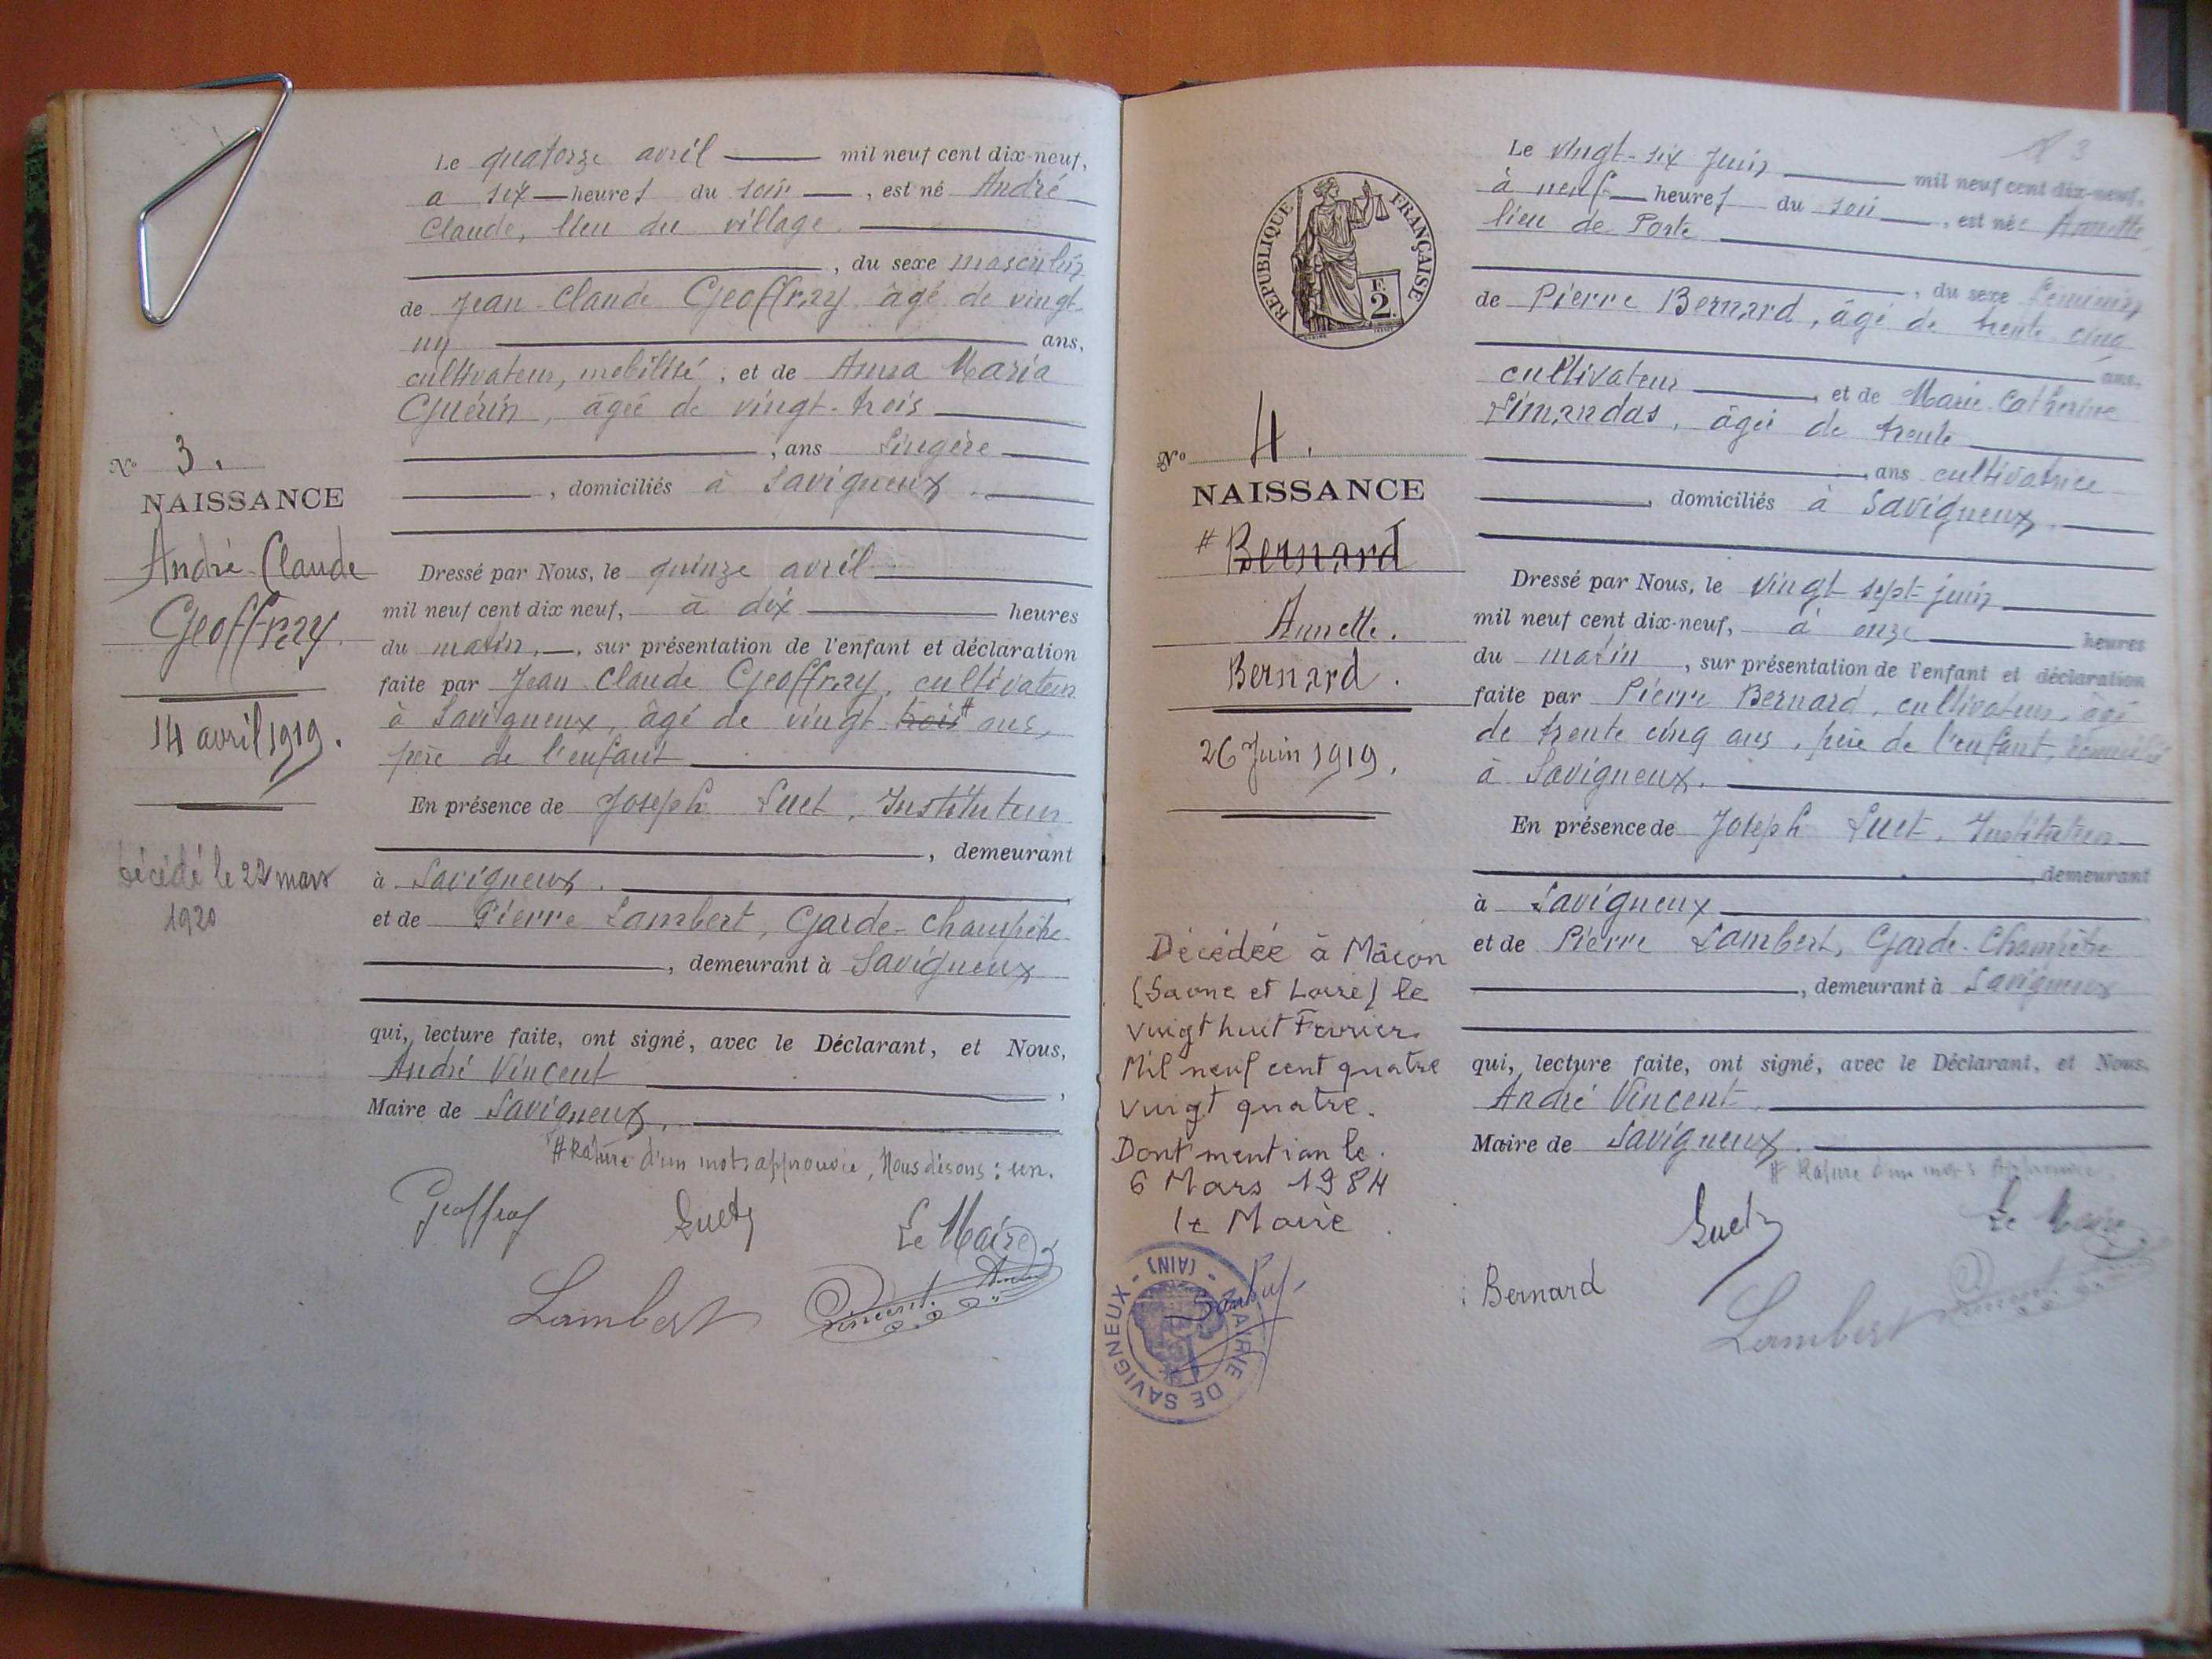 Le quatorze avril mil neuf cent dix-neuf,
a six heures du soir, est né André
Claude, lieu du village.
, du sexe masculin
de Jean Claude Geoffray âgé de vingt-
un ans,
cultivateur, mobilisé, et de Anna Maria
Guérin, âgée de vingt-trois
, ans lingère
, domiciliés à Savigneux.
No 3.
NAISSANCE
André Claude
Geoffray.
14 avril 1919.
décédé le 22 mars
1920
Dressé par Nous, le quinze avril
mil neuf cent dix neuf, à dix heures
du matin, sur présentation de l'enfant et déclaration
faite par Jean Claude Geoffray, cultivateur
à Savigneux, âgé de vingt trois # ans,
père de l'enfant
En présence de Joseph Luet, Instituteur
, demeurant
à Savigneux.
et de Pierre Lambert, Garde-Champêtre
, demeurant à Savigneux
qui, lecture faite, ont signé, avec le Déclarant, et Nous,
André Vincent
Maire de Savigneux.
# Rature d'un mots approuvée, Nous disons : un.
Geoffray Luet Le Maire
Lambert Vincent André
REPUBLIQUE FRANÇAISE
F. 2.
No 4.
NAISSANCE
# Bernard
Annette.
Bernard.
26 Juin 1919.
Décédée à Mâcon
(Saone et Loire) le
vingt huit Fevrier
Mil neuf cent quatre
vingt quatre.
Dont mention le
6 Mars 1984
le Maire
MAIRIE DE SAVIGNEUX - (AIN) -
3
Le vingt-six Juin mil neuf cent dix-neuf,
à neuf heures du soir, est née Annette
lieu de Porte
, du sexe féminin
de Pierre Bernard, âgé de trente cinq
ans,
cultivateur, et de Marie Catherine
Limandas, âgée de trente
, ans cultivatrice
, domiciliés à Savigneux.
Dressé par Nous, le vingt sept juin
mil neuf cent dix-neuf, à onze heures
du matin, sur présentation de l'enfant et déclaration
faite par Pierre Bernard, cultivateur, âgé
de trente cinq ans, père de l'enfant, domicilié
à Savigneux.
En présence de Joseph Luet, Instituteur
, demeurant
à Savigneux
et de Pierre Lambert, Garde-Champêtre
, demeurant à Savigneux
qui, lecture faite, ont signé, avec le Déclarant, et Nous,
André Vincent.
Maire de Savigneux.
# Rature d'un mots Approuvée
Luet Le Maire
Bernard
Lambert Vincent